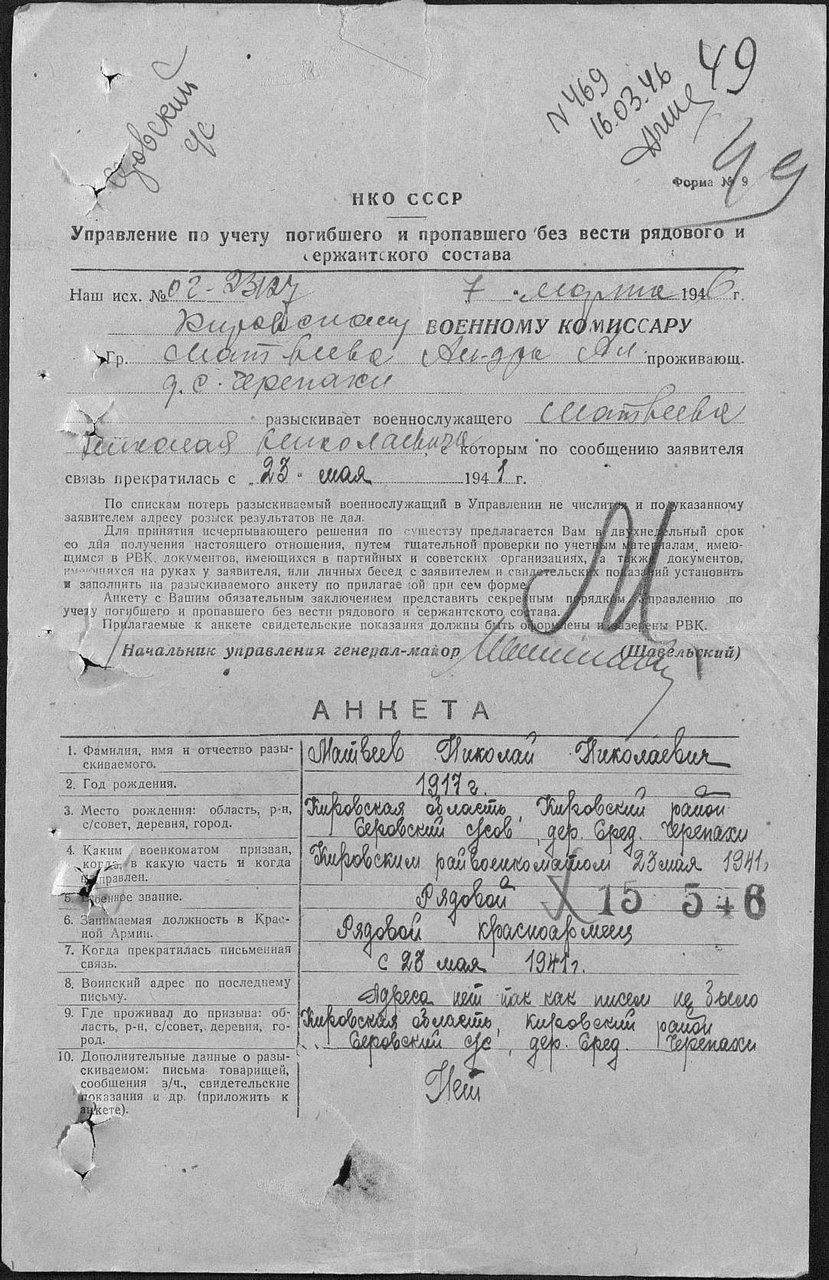 49
N 469
16.03.46
49
с/с
Форма № 9
НКО СССР
Управление по учету погибшего и пропавшего без вести рядового и
сержантского состава
Наш исх. № 02-23127 „7 “ марта 1946 г.
Кировскому ВОЕННОМУ КОМИССАРУ
Гр. Матвеева проживающ.
д. с. Черепахи
разыскивает военнослужащего Матвеева
Николая Николаевича, с которым по сообщению заявителя
связь прекратилась с „23“ мая 1941 г.
По спискам потерь разыскиваемый военнослужащий в Управлении не числится и по указанному
заявителем адресу розыск результатов не дал.
Для принятия исчерпывающего решения по существу предлагается Вам в двухнедельный срок
со дня получения настоящего отношения, путем тщательной проверки по учетным материалам, имею-
щимся в РВК, документов, имеющихся в партийных и советских организациях, а также документов,
имеющихся на руках у заявителя, или личных бесед с заявителем и свидетельских показаний установить
и заполнить на разыскиваемого анкету по прилагаемой при сем форме.
Анкету с Вашим обязательным заключением представить секретным порядком Управлению по
учету погибшего и пропавшего без вести рядового и сержантского состава.
Прилагаемые к анкете свидетельские показания должны быть оформлены и заверены РВК.
М
Начальник управления генерал-майор (Шавельский)
АНКЕТА
1. Фамилия, имя и отчество разы-
скиваемого.
Матвеев Николай Николаевич
2. Год рождения.
1917 г.
3. Место рождения: область, р-н,
с/совет, деревня, город.
Кировская область, Кировский район
с/сов дер. Сред. Черепахи
4. Каким военкоматом призван,
когда, в какую часть и когда
направлен.
Кировским райвоенкоматом 23 мая 1941г
5. Военное звание.
Рядовой
15 546
6. Занимаемая должность в Крас-
ной Армии.
Рядовой красноармеец
7. Когда прекратилась письменная
связь.
с 23 мая 1941г.
8. Воинский адрес по последнему
письму.
Адреса нет так как писем не было
9. Где проживал до призыва: об-
ласть, р-н, с/совет, деревня, го-
род.
Кировская область, Кировский район
с/с, дер. Сред. Черепахи
10. Дополнительные данные о разы-
скиваемом: письма товарищей,
сообщения з/ч., свидетельские
показания и др. (приложить к
анкете).
Нет